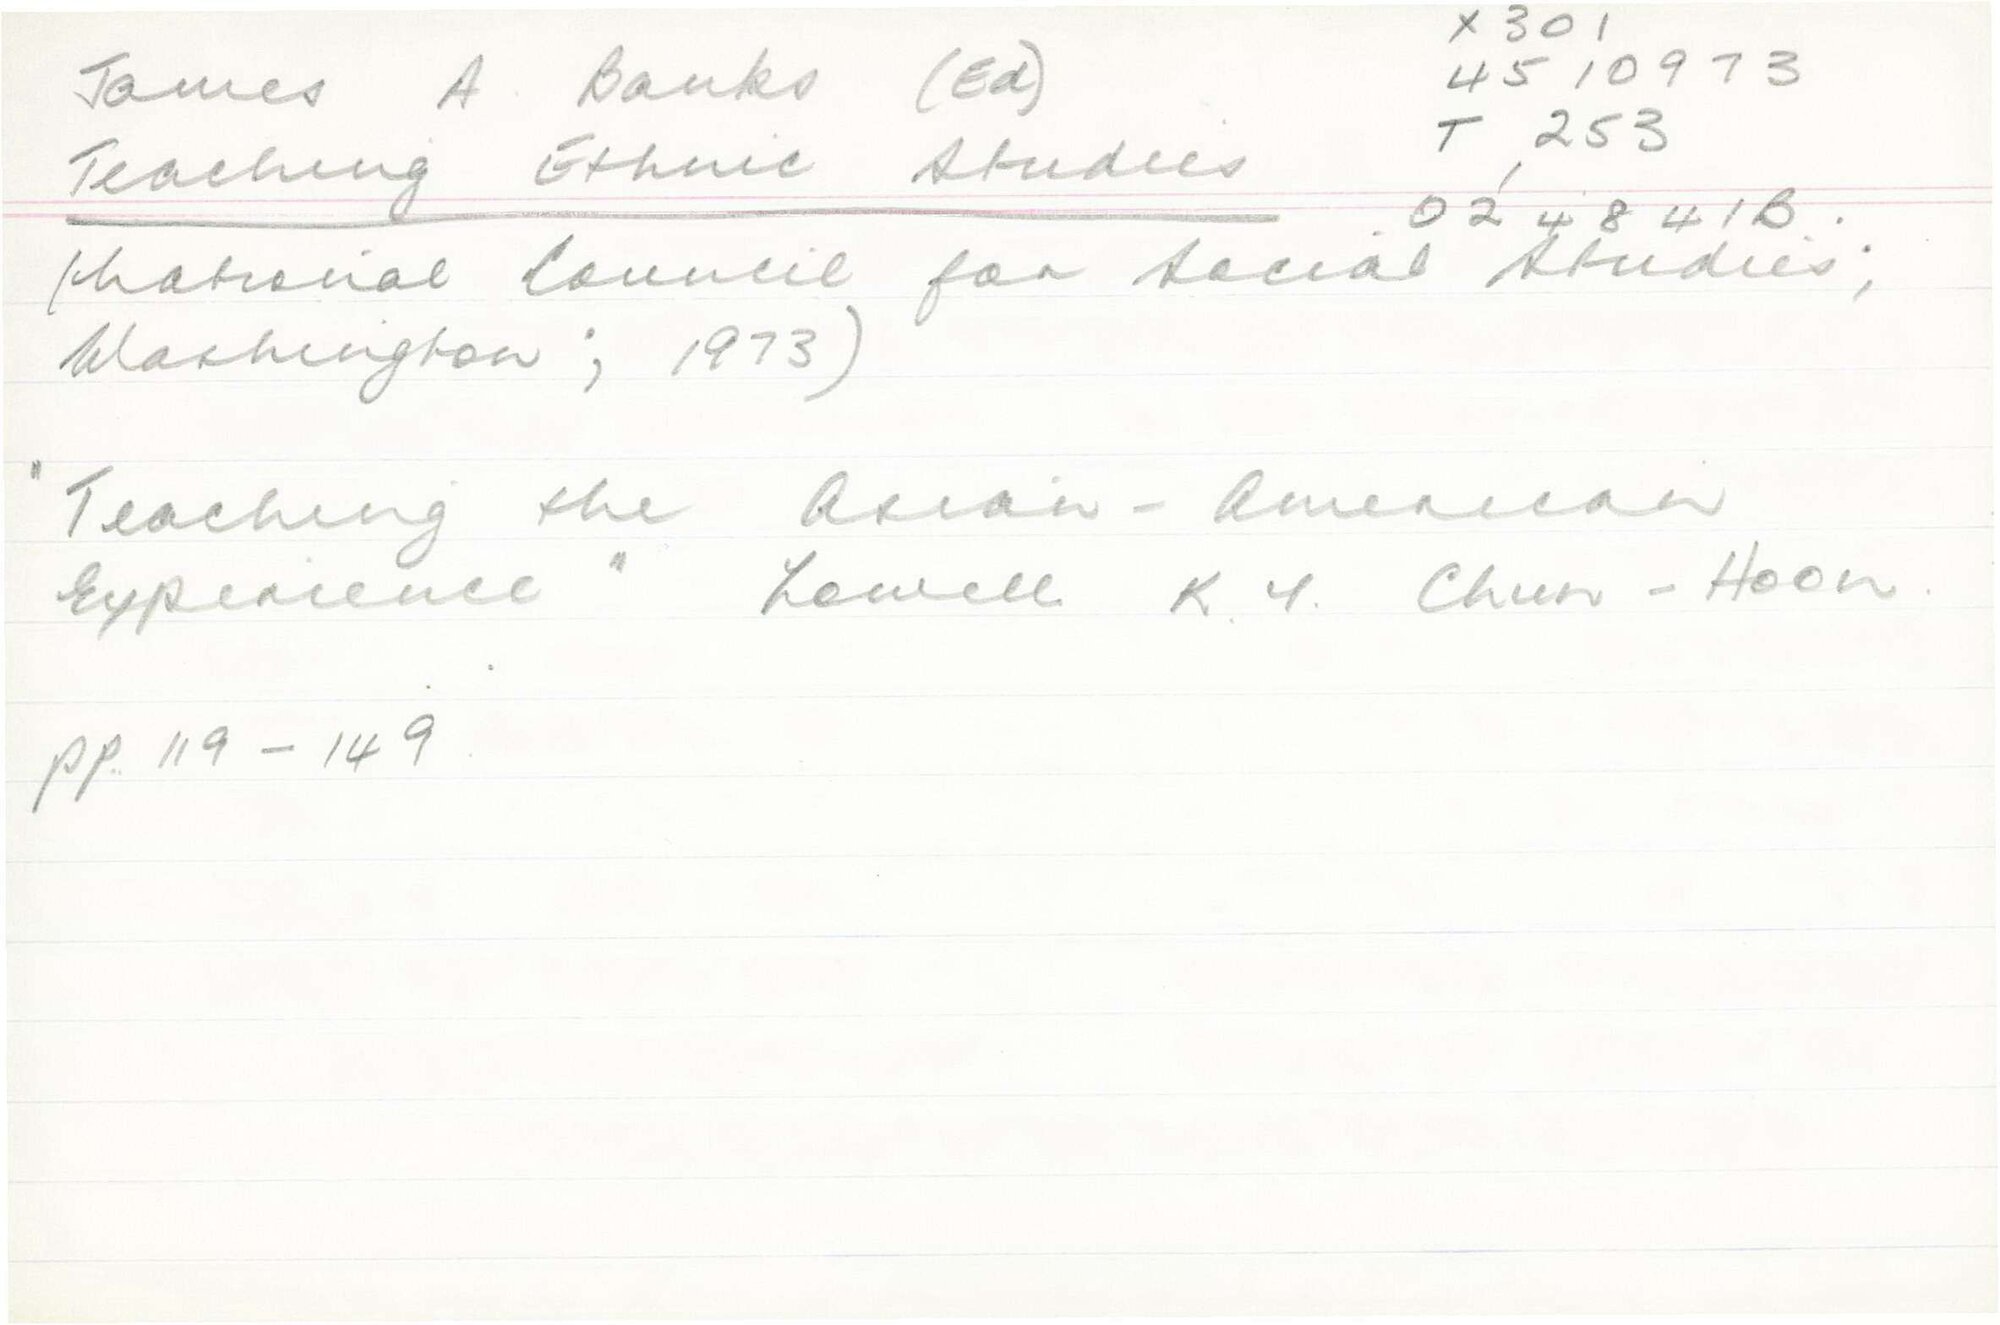 X301
James A Banks (Ed)
4510973
Teaching Ethnic Studies
T 253
024841B.
(National Council for Social Studies;
Washington; 1973)
"Teaching the Asian-American
Experience" Lowell K.Y. Chun-Hoon.
pp. 119 - 149